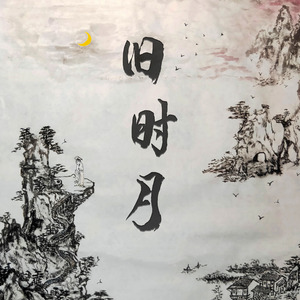 旧时月